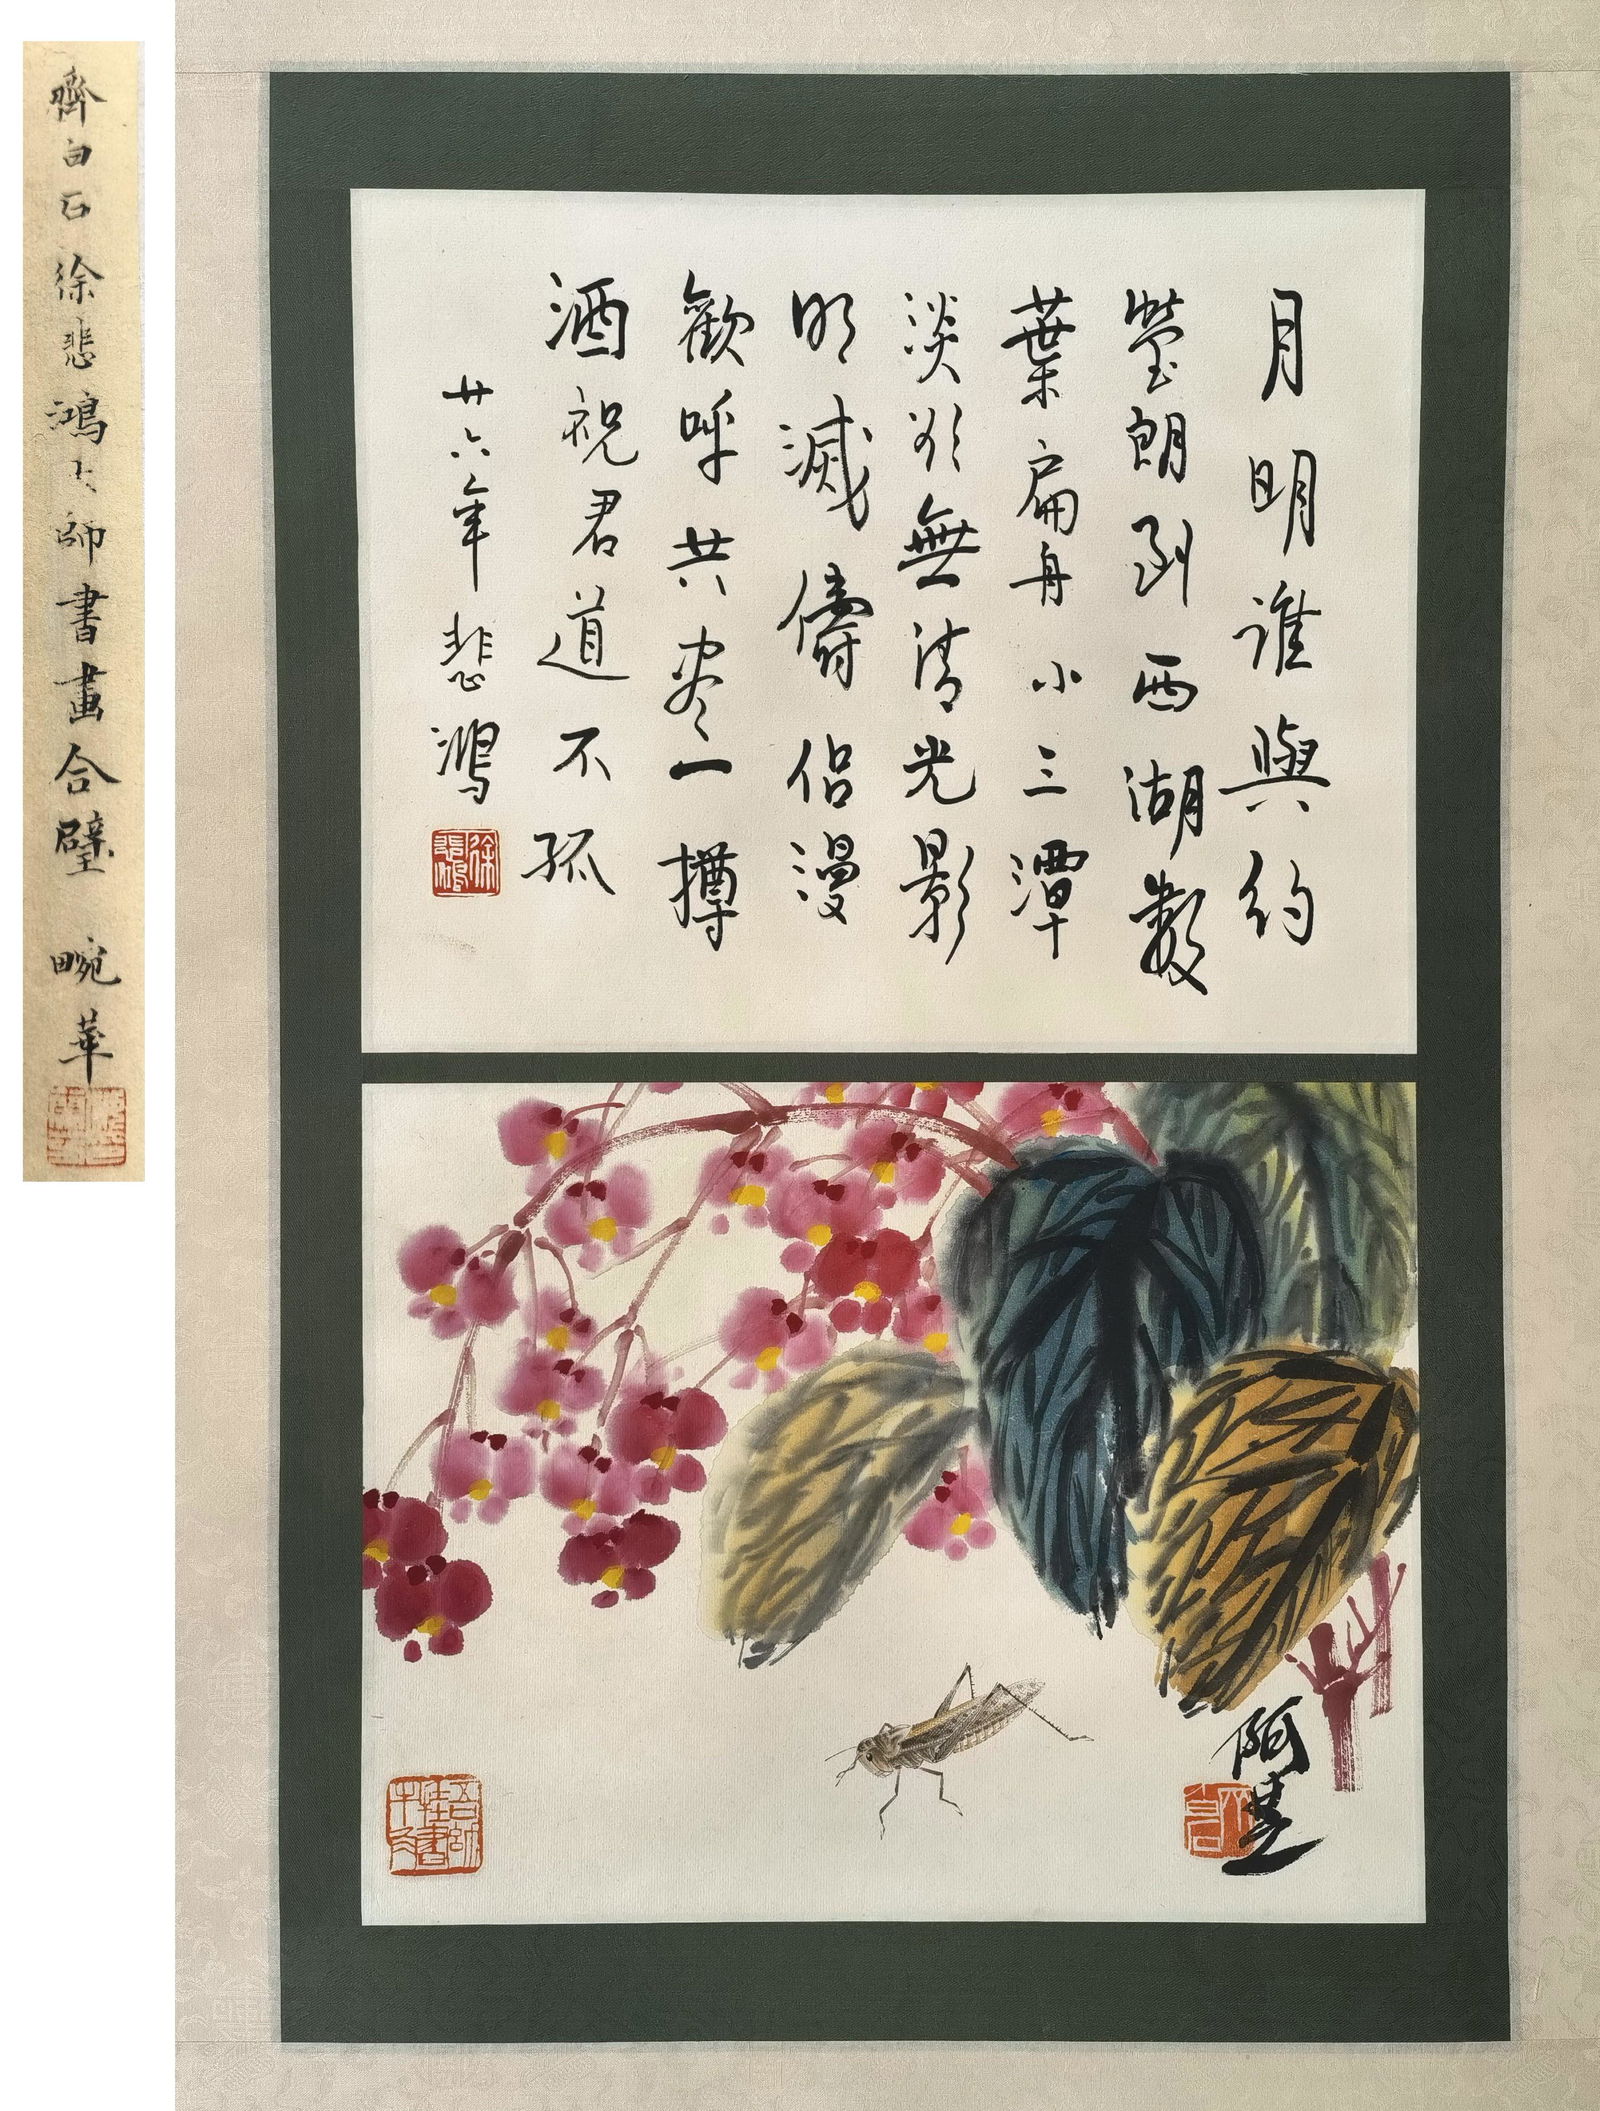 齊白石徐悲鴻大師書畫合璧 畹華
月明誰與約
瑩朗到西湖數
葉扁舟小三潭
淡欲無清光影
明滅儔侶漫
歡呼共盡一樽
酒祝君道不孤
廿六年悲鴻
徐悲鴻
阿芝